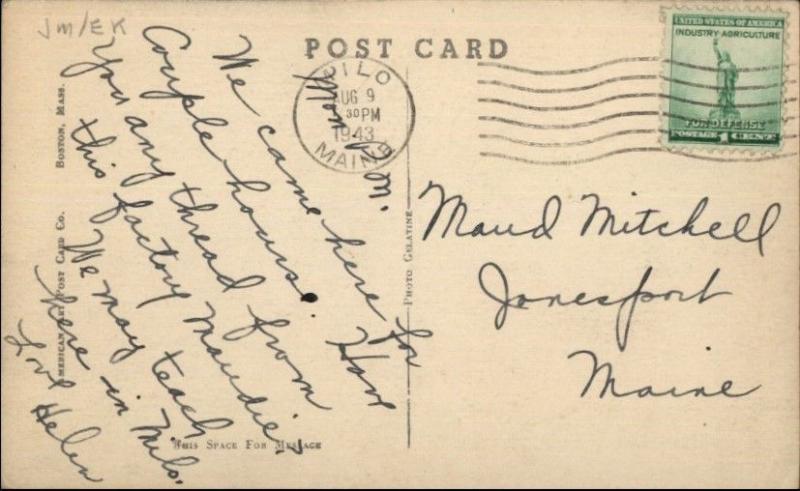 JM/EK
POST CARD
MILO
AUG 9
30PM
1943
MAINE
UNITED STATES OF AMERICA
INDUSTRY AGRICULTURE
FOR DEFENSE
POSTAGE 1 CENT
We came here for
Couple hours. Have
You any thread from
this factory Maudie?
We may teach
here in Milo.
Love Helen
Maud Mitchell
Jonesport
Maine
AMERICAN ART POST CARD CO. BOSTON, MASS.
PHOTO GELATINE
THIS SPACE FOR MESSAGE